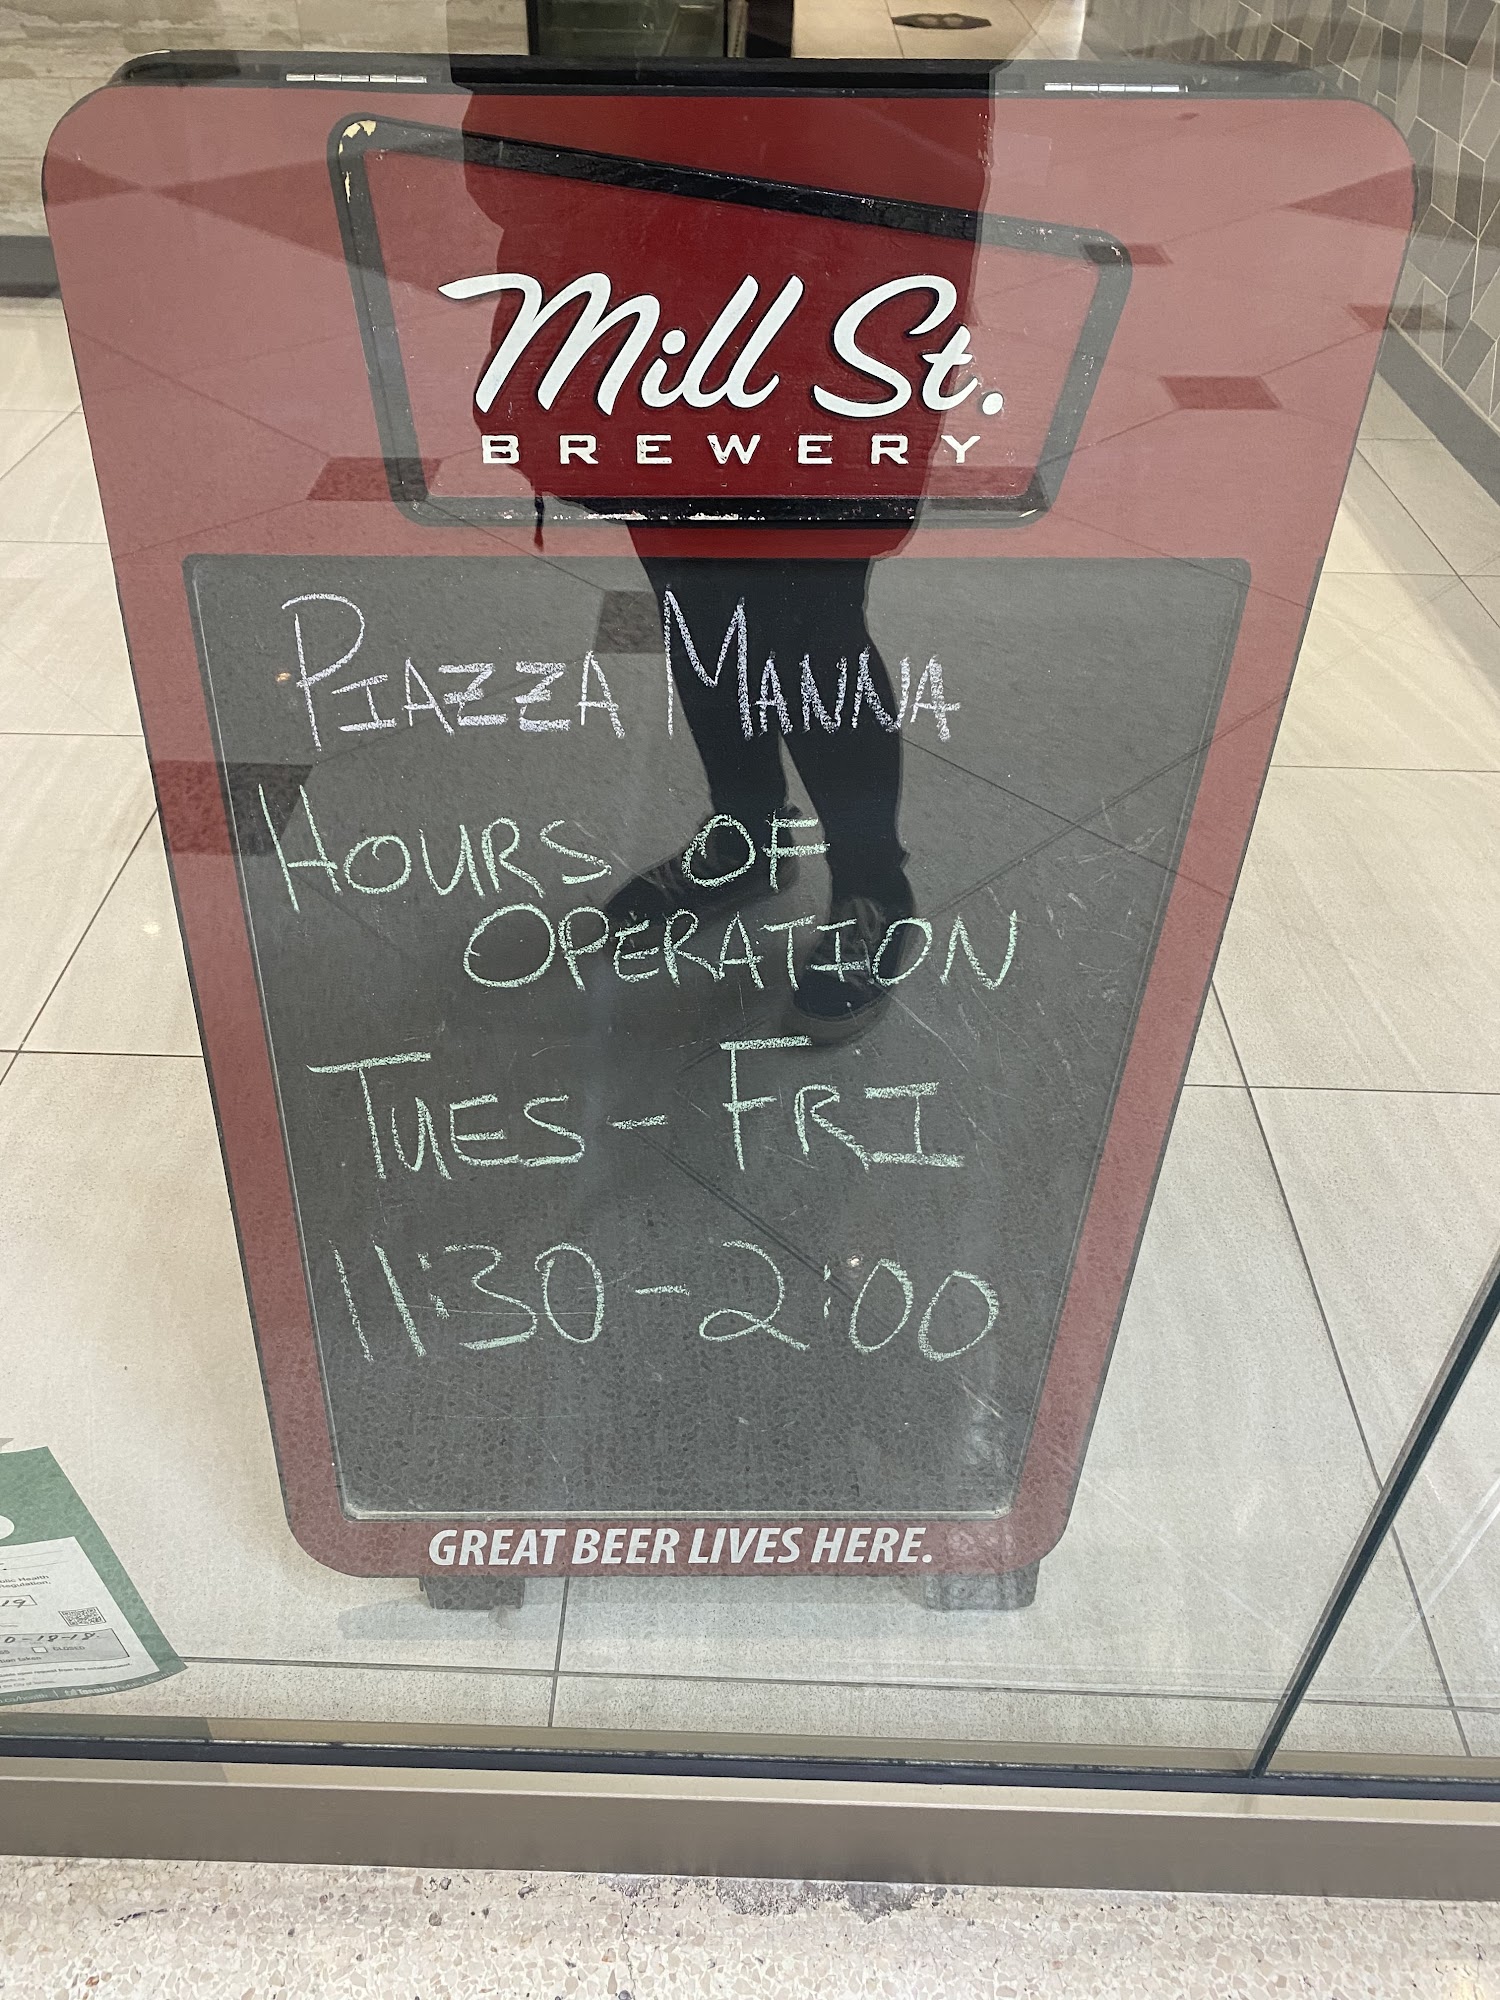 Mill St.
BREWERY
PIAZZA MANNA
HOURS OF
OPERATION
TUES - FRI
11:30 - 2:00
GREAT BEER LIVES HERE.
19
CLOSED
TORONTO